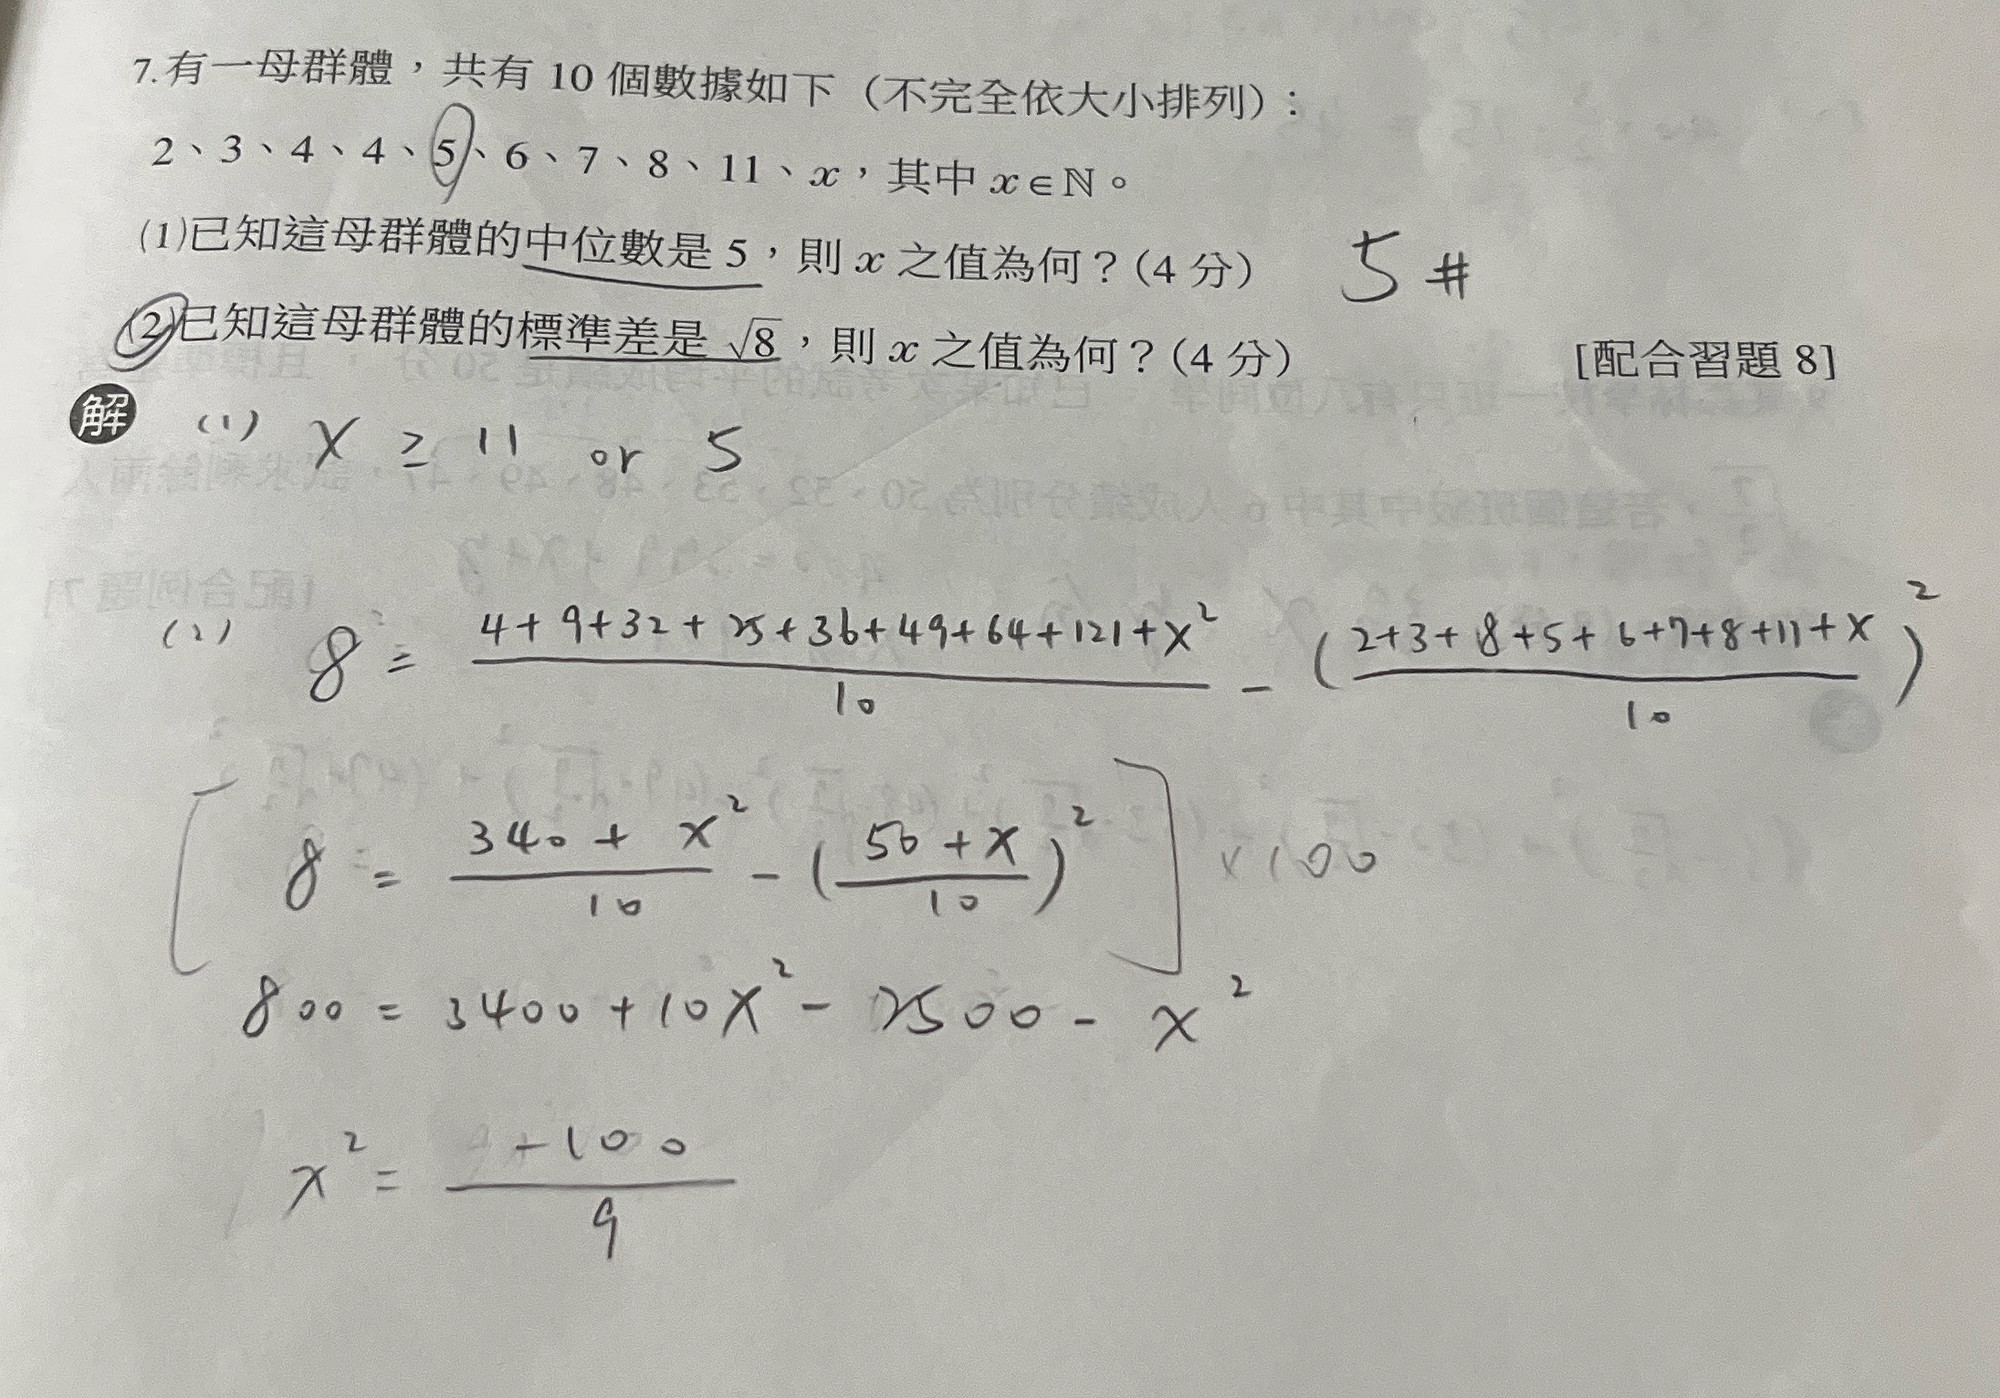 7.有一母群體，共有 10 個數據如下（不完全依大小排列）：
2、3、4、4、5、6、7、8、11、x，其中 x∈ℕ。
(1)已知這母群體的中位數是 5，則 x 之值為何？(4 分)
5 #
(2)已知這母群體的標準差是 √8，則 x 之值為何？(4 分)
[配合習題 8]
解
(1) x ≥ 11 or 5
(2) 8 = (4+9+32+25+36+49+64+121+x²)/10 - ((2+3+8+5+6+7+8+11+x)/10)²
[8 = (340+x²)/10 - ((50+x)/10)²] ×100
800 = 3400+10x² - 2500 - x²
x² = -100/9